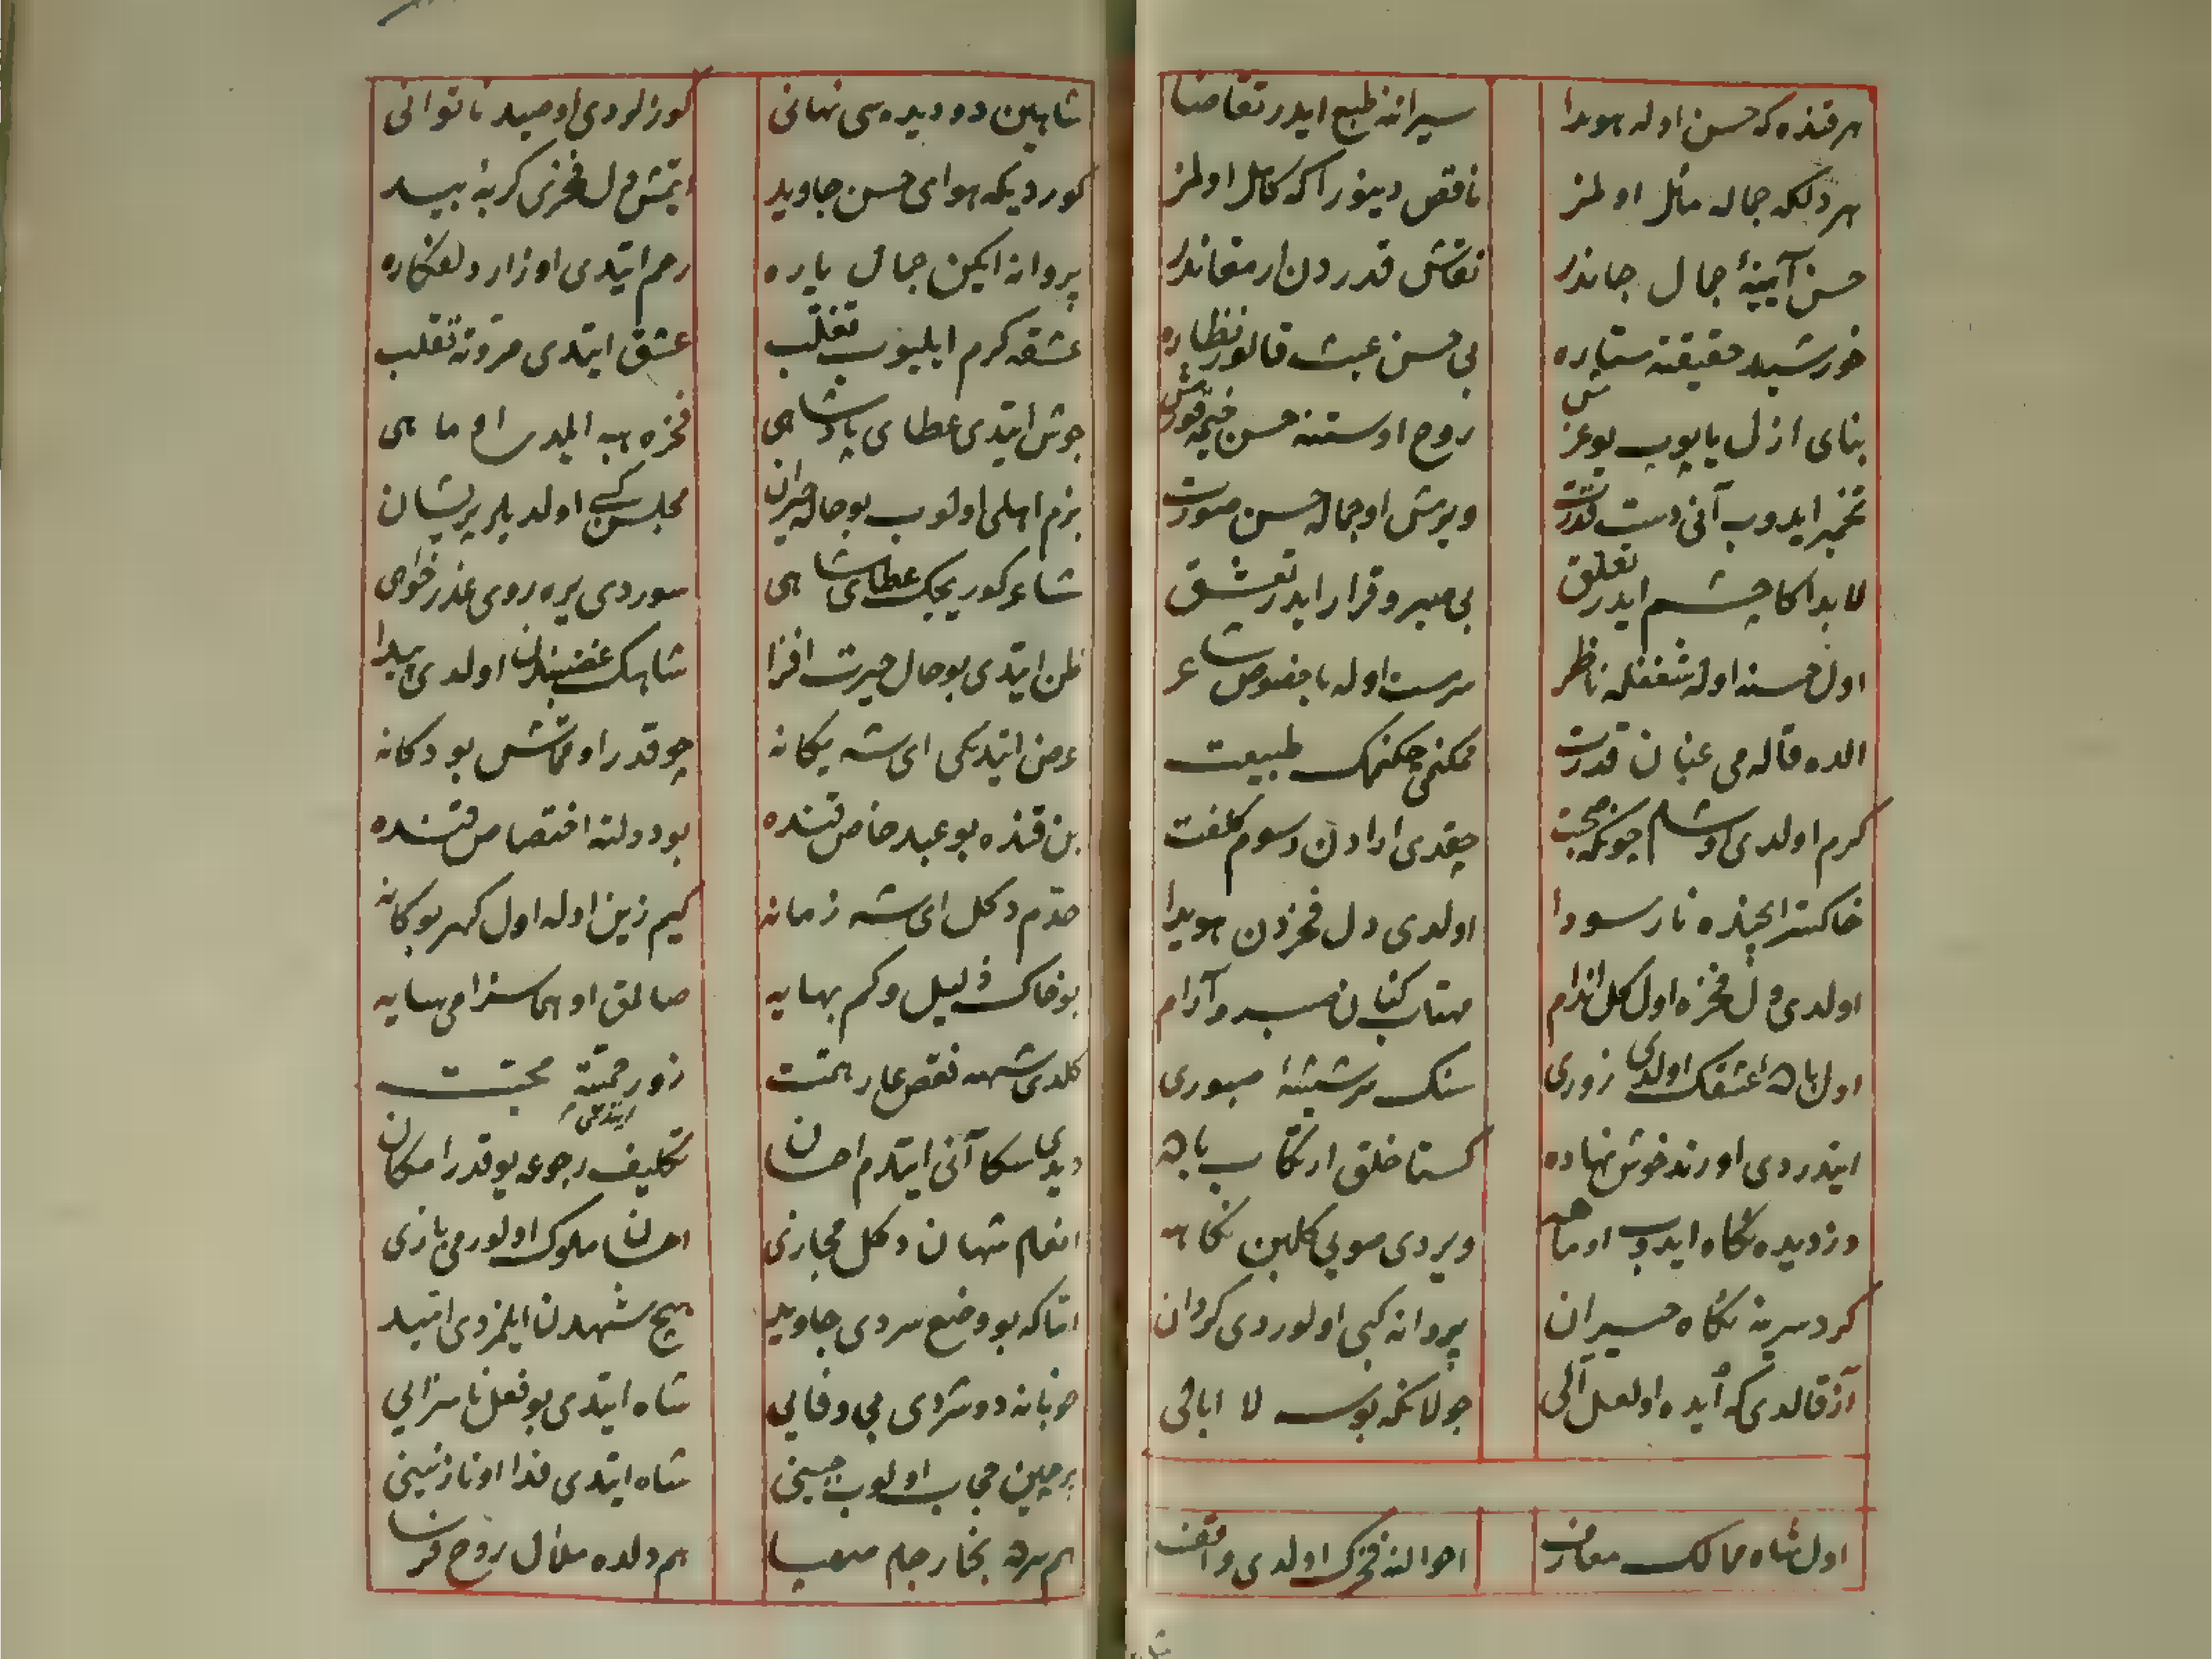 هر قنده كه حسن اوله هويدا
سيرانه طبع ايدر تقاضا
هر دلكه جماله مائل اولمز
ناقص دينور اكه كامل اولمز
حسن آيينهٔ جمال جاندر
نقاش قدردن ارمغاندر
خورشيد حقيقته ستاره
بی حسن عبث قالور نظاره
بنای ازل ياپوب بو عرش
روح اوستنه حسن
تخمير ايدوب آنی دست قدرت
ويرمش او جماله حسن صورت
لابد اكا چشم ايدر تعلق
بی صبر و قرار ايدر تعشق
اول حسنه اوله شغفله ناظر
سرمست اوله با خصوص شاعر
الده قاله می عنان قدرت
ممكنمی چكنمك طبيعت
كرم اولدی او شلم چونكه صحبت
چقدی ارادن رسوم كلفت
خاكستر ايچنده نار سودا
اولدی دل فخردن هويدا
اولدی دل فخره اول كل اندام
مهتاب كتان صبر و آرام
اول باده عشقك اولدی زوری
سنك سر شيشهٔ صبوری
ايتدردی او رند خوش نهاده
كستاخلق ارتكاب باده
دزديده نكاه ايدوب او ماهه
ويردی صويی كلبن نكاهه
كرد سرينه نكاه حيران
پروانه كبی اولوردی كردان
آز قالدی كه آيده او لعل آلی
جولانكه بوسه لا ابالی
اول شاه ممالك معارف
احوالنه فخرك اولدی واقف
شاهين دو ديده سی نهانی
كوزلردی او صيد ناتوانی
كورديكه هوای حسن جاويد
ايتمش دل فخری كربهٔ بيد
پروانه ايكن جمال ياره
رحم ايتدی او زار دلفكاره
عشقه كرم ايليوب تغلب
عشق ايتدی مروته تقلب
جوش ايتدی عطای پادشاهی
فخره هبه ايلدی او ماهی
بزم اهلی اولوب بو حاله حيران
مجلس كبی اولديلر پريشان
شاعر كوريجك عطای شاهی
سوردی يره روی عذرخواهی
ظن ايتدی بو حال حيرت افزا
شاهك غضبندن اولدی پيدا
عرض ايتديكی ای شه يكانه
چوقدر او قماش بو دكانه
بن قنده بو عبد خاص قنده
بو دولته اختصاص قنده
حدم دكل ای شه زمانه
كيم زين اوله اول كهر بو كانه
بو خاك ذليل و كم بهايه
صالمق او هما سزامی سايه
كلدی شهه نقص عار همت
زور حميته ايتدی محبت
ديدی سكا آنی ايتدم احسان
تكليف رجوعه يوقدر امكان
انعام شهان دكل مجازی
احسان ملوك اولورمی بازی
اتاكه بو وضع سردی جاويد
هيچ شهدن ايلمزدی اميد
خوبانه دوشردی بی وفايی
شاه ايتدی بو فعل ناسزايی
پرچين حجاب اولوب جبينی
شاه ايتدی فدا او نازنينی
هم سرده بخار جام صهبا
هم دلده ملال روح فرسا